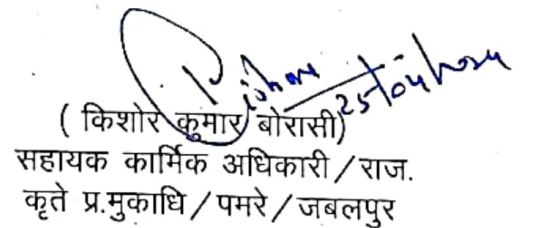 25/04/2024
( किशोर कुमार बोरासी)
सहायक कार्मिक अधिकारी / राज.
कृते प्र.मुकाधि / पमरे / जबलपुर